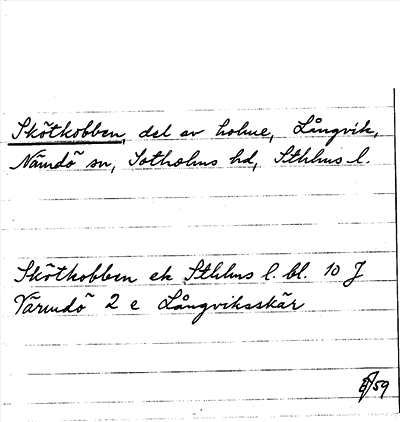 Skötkobben, del av holme, Långvik,
Nämdö sn, Sotholms hd, Sthlms l.
Skötkobben ek Sthlms l. bl. 10 J
Värmdö 2 e Långviksskär
/59